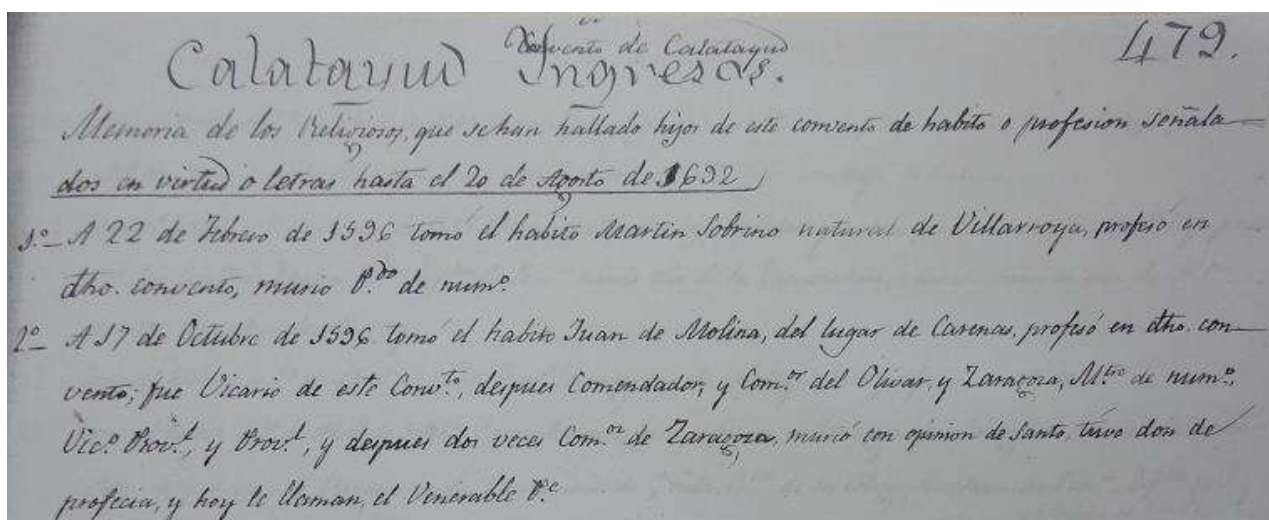 Convento de Calatayud
Calatayud Ingresos. 479.
Memoria de los Religiosos, que se han hallado hijos de este convento de habito o profesion señala-
dos en virtud o letras hasta el 20 de Agosto de 1692
1.º A 22 de Febrero de 1596 tomó el habito Martin Sobrino natural de Villarroya, profesó en
dho. convento, murio P.do de num.º
2º A 17 de Octubre de 1596 tomó el habito Juan de Molina, del lugar de Carenas, profesó en dho. con-
vento; fue Vicario de este Conv.to, despues Comendador, y Com.or del Olivar, y Zaragoza, M.tro de num.º,
Vic.º Prov.l, y Prov.l, y despues dos veces Com.or de Zaragoza, murió con opinion de Santo, tuvo don de
profecia, y hoy le llaman, el Venerable P.e